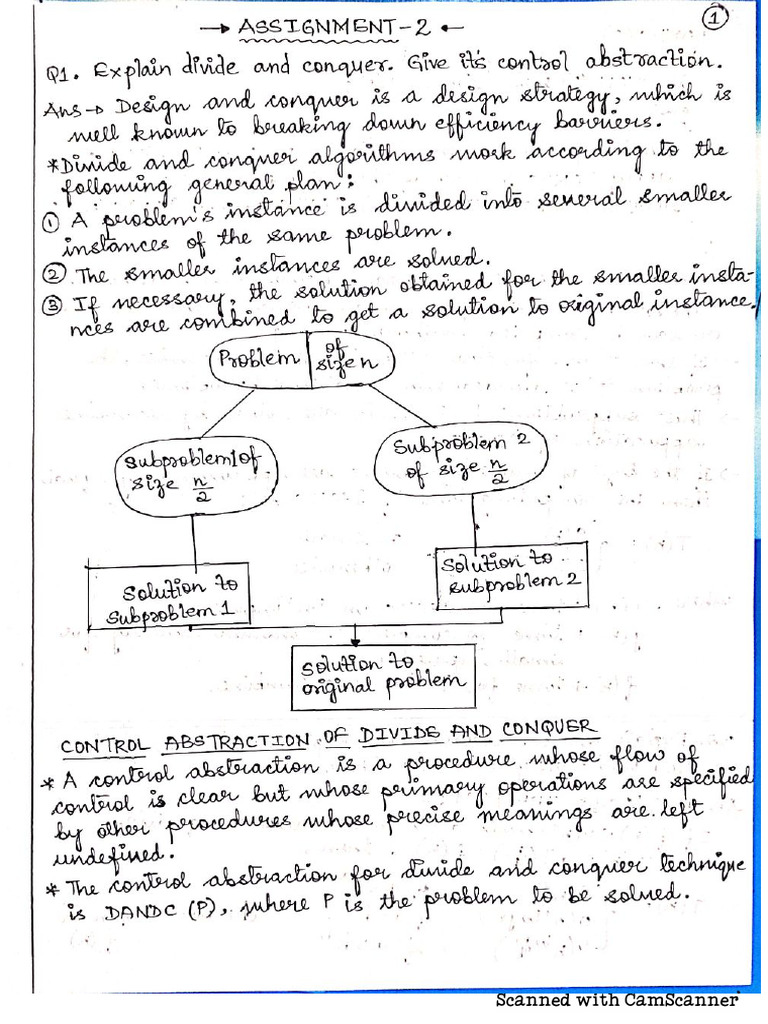 → ASSIGNMENT-2 ←
1
Q1. Explain divide and conquer. Give it's control abstraction.
Ans→ Design and conquer is a design strategy, which is
well known to breaking down efficiency barriers.
*Divide and conquer algorithms work according to the
following general plan:
① A problem's instance is divided into several smaller
instances of the same problem.
② The smaller instances are solved.
③ If necessary, the solution obtained for the smaller insta-
nces are combined to get a solution to original instance.
Problem of
size n
Subproblem 1 of
size n/2
Subproblem 2
of size n/2
Solution to
Subproblem 1
Solution to
subproblem 2
Solution to
original problem
CONTROL ABSTRACTION OF DIVIDE AND CONQUER
* A control abstraction is a procedure whose flow of
control is clear but whose primary operations are specified
by other procedures whose precise meanings are left
undefined.
* The control abstraction for divide and conquer technique
is DANDC (P), where P is the problem to be solved.
Scanned with CamScanner